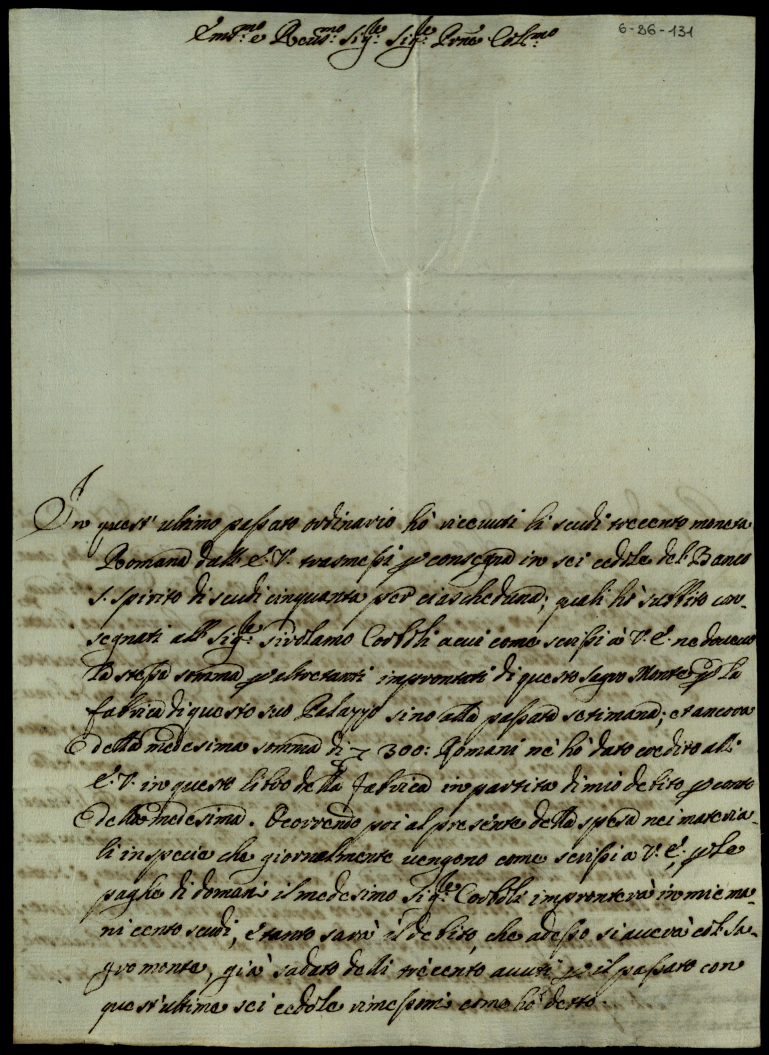 Em.mo e Reu.mo Sig.re Sig.re Prne Col.mo
6-26-131
In quest'ultimo passato ordinario hò riceuuti li scudi trecento moneta
Romana dall'E.V. trasmessi p consegna in sei cedole del Banco
S. Spirito di scudi cinquanta per ciascheduna; quali hò subbito con-
segnati all Sig.re Girolamo Corboli a cui come scrissi à V.E. ne doueuo
la stessa somma p altretanti improntati di questo Sagro Monte p la
fabrica di questo suo Palazzo sino alla passata setimana; et ancora
della medesima somma di 300: Romani nè hò dato credito all'
E.V. in questo libro della fabrica in partita di mio debito p conto
della medesima. Occorrendo poi al presente della spesa nei materia-
li in specie che giornalmente vengono come scrissi a V.E., p le
paghe di domani il medesimo Sig.re Corboli impronterà in mie ma-
ni cento scudi, e tanto sarà il debito, che adesso si auerà col Sa-
gro monte, già sadato delli trecento auuti p il passato con
quest'ultime sei cedole rimessemi come hò detto.